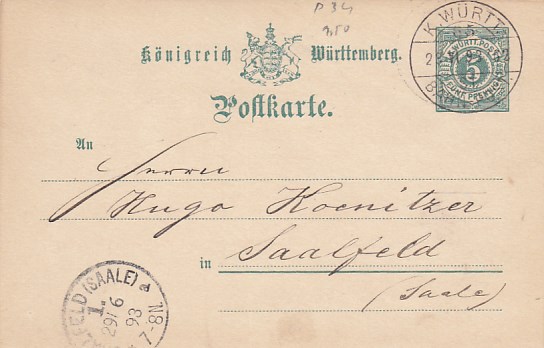 P 34
Königreich Württemberg.
K. WÜRTT.
K. WÜRTT. POST
5
FÜNF PFENNIG
Postkarte.
An
Herrn
Hugo Koenitzer
in Saalfeld
(Saale)
SAALFELD (SAALE) a
1.
29/6
93
7-8N